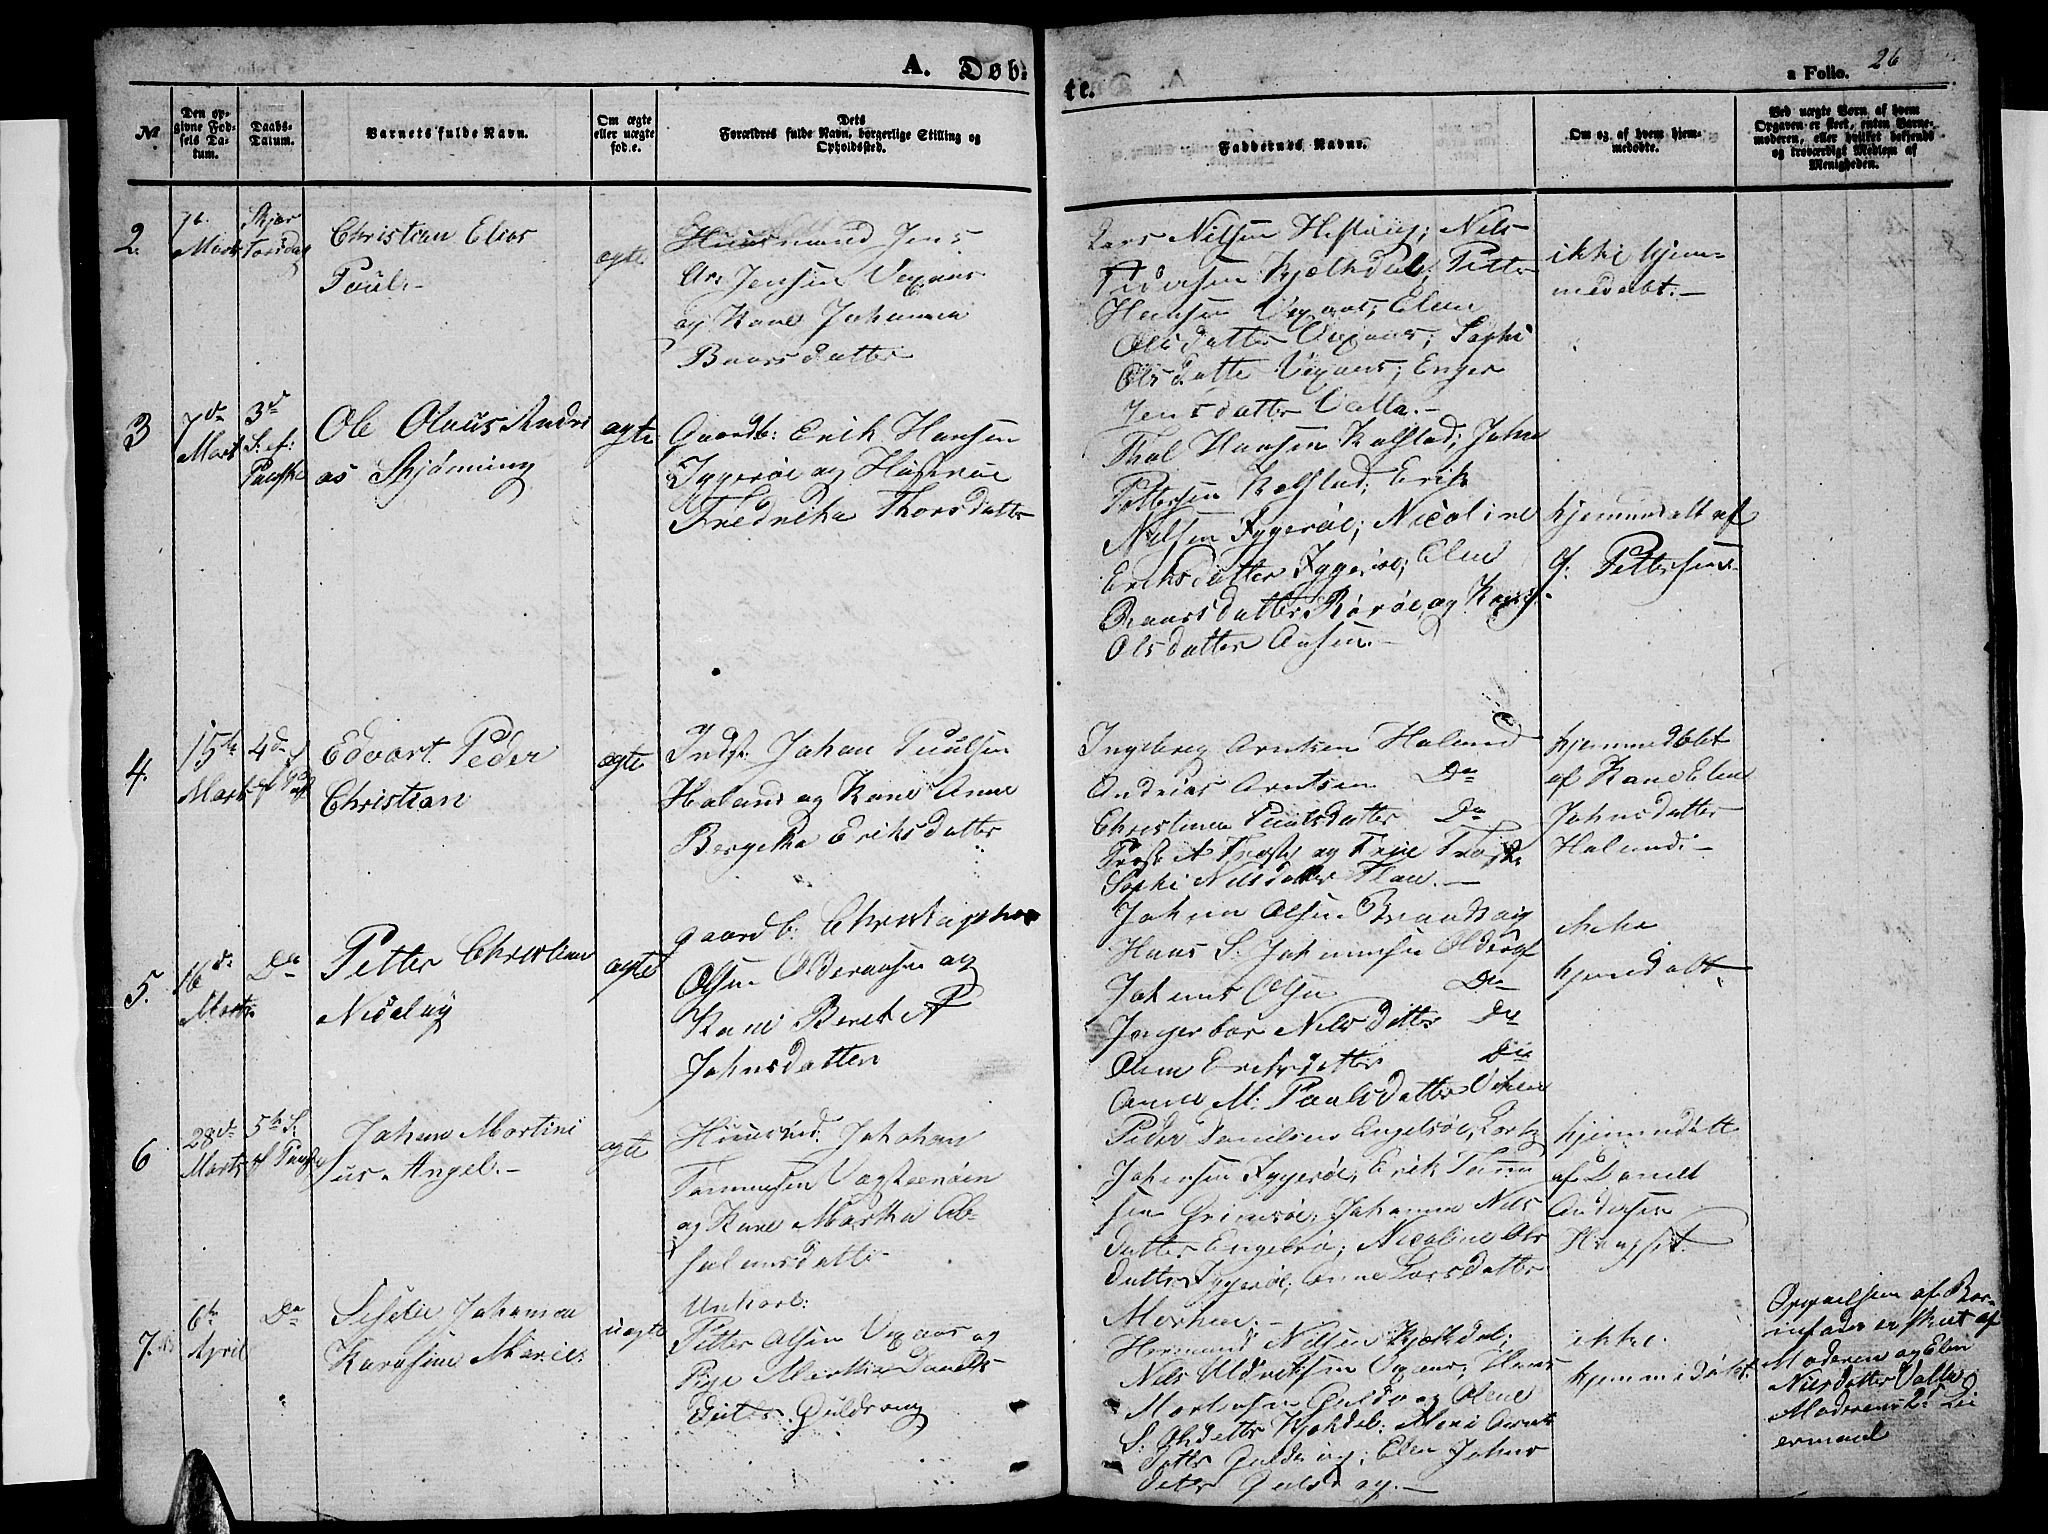 A. Døb-
te.
a Folio. 26
№
Den op-
givne Fød-
sels Da-
tum.
Daabs-
Datum.
Barnets fulde Navn.
Om ægte
eller uægte
fød.e.
Dets
Forældres fulde Navn, borgerlige Stilling og
Opholdssted.
Faddernes Navne.
Om og af hvem hjem-
medøbte.
Ved uægte Børn af hvem
Opgaven er skeet, enten Barne-
moderen, eller hvilket bekjendt
og troværdigt Medlem af
Menigheden.
2.
Marts
Skjær
Torsdag
Christian Elias
Paul.-
ægte
Huusmand Jens
Jensen Vexaas
og Kone Johanna
Baarsdatter
Lars Nilsen ; Nils
Pedersen Kjelkdal; Petter
Hansen Vexaas; Elen
Olsdatter Vexaas; Sophi
Olsdatter Vexaas; Enger
Jensdatter Valla.-
ikke hjem-
medøbt.-
3
7de
Marts
3d
S. ef:
Paaske
Ole Olaus Andre
as Skjønning
ægte
Gaardb: Erik Hansen
Tyggerøe og Hustrue
Fredrikke Thorsdatter
Thol Hansen Kalfstad; Johan
Pettersen Kalfstad; Erik
Nilsen Tyggerøe; Nicoline
Eriksdatter Tyggerøe; Elen
Baarsdatter Rørøe og
Olsdatter Aasen.-
hjemmedøbt af
G: Pettersen
4.
15de
Marts
4de S
ef Paask
Edvart Peder
Christian
ægte
Inds: Johan Paulsen
Haland og Kone Anne
Bergitha Eriksdatter
Ingebreg Arntsen Haland
Andreas Arntsen Do
Christina Paulsdatter Do
Sophi Nilsdatter Flan.-
hjemmedøbt
af Kone Elen
Johnsdatter
Haland.-
5.
16de
Marts
Do
Petter Christian
Nicolay
ægte
Gaardb: Christopher
Olsen Olderaasen og
Kone Beret A
Johnsdatter
Johan Olsen Brandsøig
Hans S. Johannesen
Johannes Olsen Do
Ingerbor Nilsdatter Do
Olene Eriksdatter Do
Anne M: Paulsdatter
ikke
hjemdøbt
6
28de
Marts
5te S.
ef Paaske
Johan Martini
us Angel.-
ægte
Huusmd. Johan
Tommesen
og Kone Martha Ab-
salonsdatter
Peder Danielsen Engelsøe,
Johansen Tyggerøe, Erik
sen Grimsøe, Johanna Nils
datter Engelsøe; Nicoline Ols
datter Tyggerøe; Anne Larsdatter
hjemmedøbt
af Daniel
Andersen
7.
6te
April
Do
Johanna
Karasine Marie.
uægte
Unkarl:
Petter Olsen Vexaas og
Pige Martha Daniels
datter Guldsvog
Hermand Nilsen Kjelkdal;
Nils Uldriksen Vexaas; Hans
Mortensen Guldsvog Olene
S. Olsdatter Kjelkdal: Mari Arnts
datter Guldsvog; Elen Johns
datter Guldsvog.-
ikke
hjemmedøbt.
Opgivelsen af Bar-
nefader er skeet af
Moderen og Elen
Nilsdatter Valla
Moderens 2d Lei
ermaal